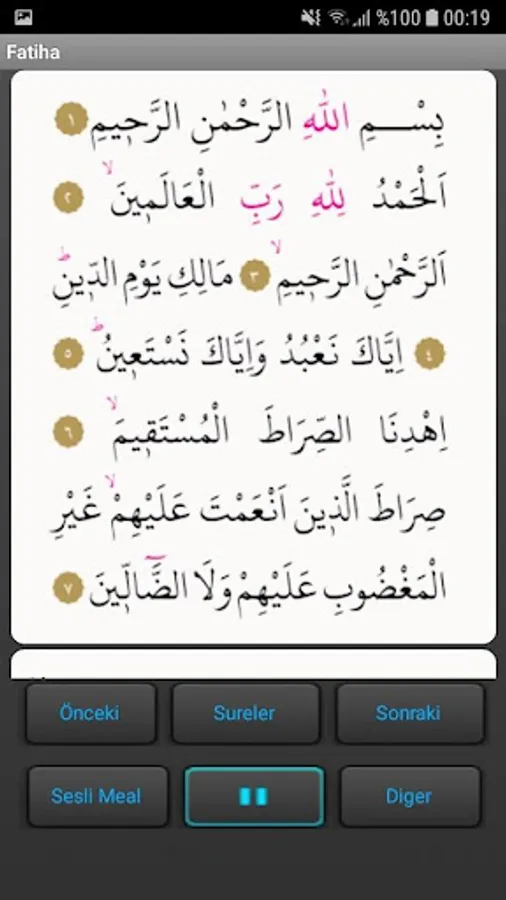 %100 00:19
Fatiha
بِسْــــمِ اللّٰهِ الرَّحْمٰنِ الرَّحٖيمِ ١
اَلْحَمْدُ لِلّٰهِ رَبِّ الْعَالَمٖينَۙ ٢
اَلرَّحْمٰنِ الرَّحٖيمِۙ ٣ مَالِكِ يَوْمِ الدّٖينِؕ
٤ اِيَّاكَ نَعْبُدُ وَاِيَّاكَ نَسْتَعٖينُؕ ٥
اِهْدِنَا الصِّرَاطَ الْمُسْتَقٖيمَۙ ٦
صِرَاطَ الَّذٖينَ اَنْعَمْتَ عَلَيْهِمْۙ غَيْرِ
الْمَغْضُوبِ عَلَيْهِمْ وَلَا الضَّٓالّٖينَ ٧
Önceki Sureler Sonraki
Sesli Meal Diger